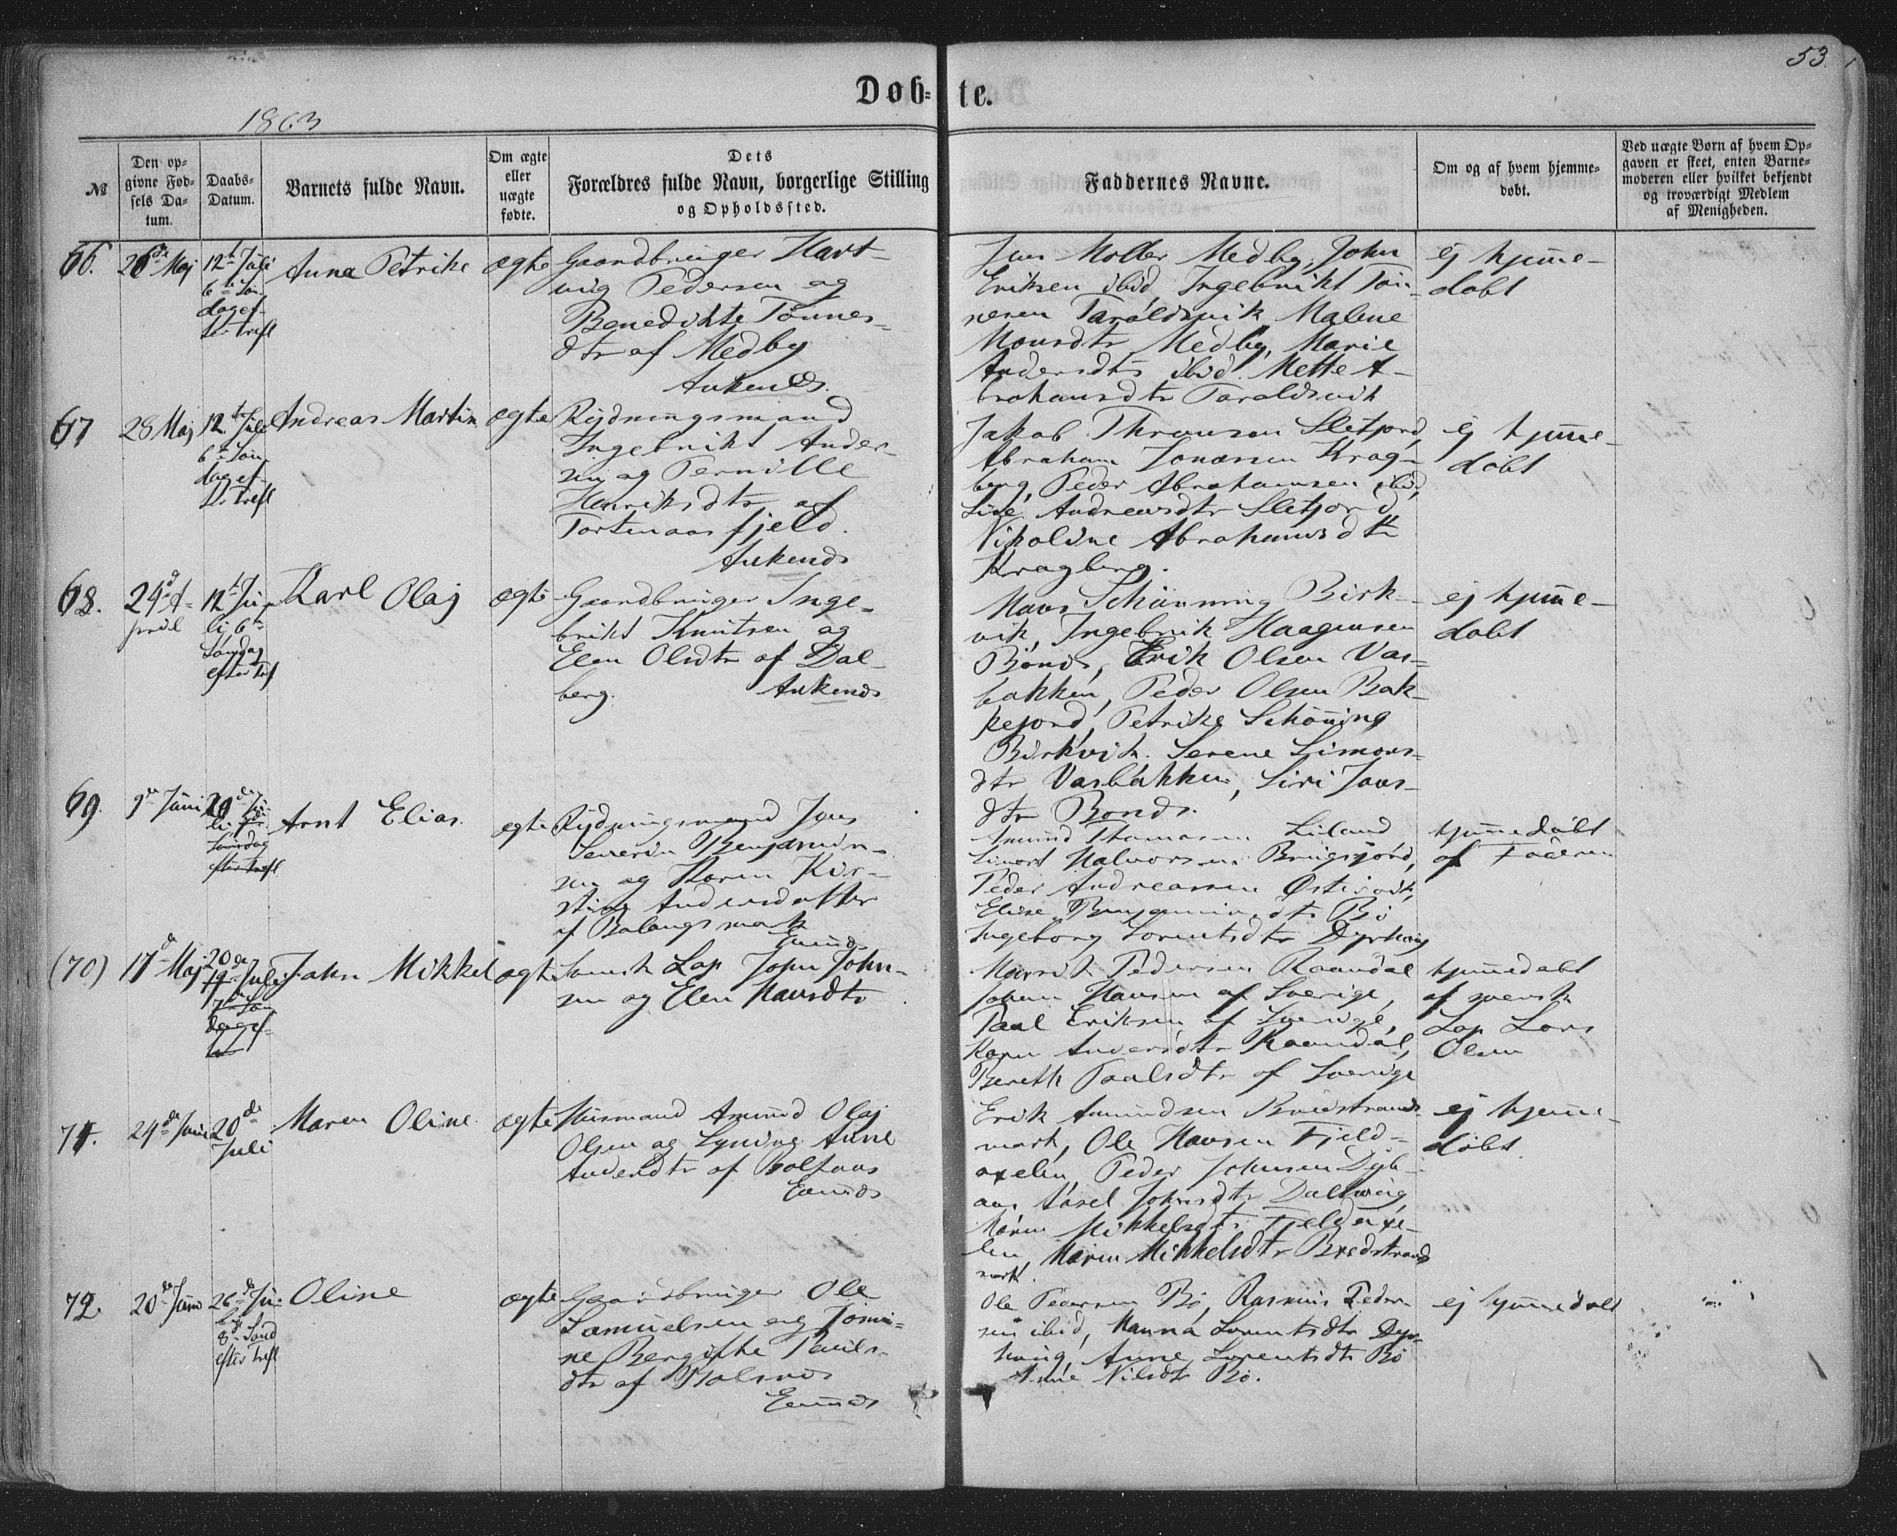 53.
Døb= te.
1863
№
Den op=
givne Fød=
sels Da=
tum.
Daabs=
Datum.
Barnets fulde Navn.
Om ægte
eller
uægte
fødte.
Dets
Forældres fulde Navn, borgerlige Stilling
og Opholdssted.
Faddernes Navne.
Om og af hvem hjemme=
døbt.
Ved uægte Børn af hvem Op=
gaven er skeet, enten Barne=
moderen eller hvilket bekjendt
og troværdigt Medlem
af Menigheden.
66.
26de Maj
12te Juli
6te Søn
dag ef-
ter Trefl
Anna Petrike
ægte
Gaardbruger Hart-
vig Pedersen og
Benedikte Tønnes-
dtr af Medby
Ankenes.
Jens Moller Medby, John
Eriksen ibid, Ingebrikt Tøn-
nesen Taraldsvik Malene
Monsdtr Medby, Marie
Andersdtr ibid. Mette A-
brahamsdtr Taraldsvik
ej hjemme-
døbt
67
28 Maj
12te Juli
6te Søn
dag ef-
ter Trefl
Andreas Martin
ægte
Rydningsmand
Ingebrikt Ander-
sen og Pernille
Henriksdtr af
Tortenaasfjeld.
Ankenes
Jakob Thronsen Sletjord
Abraham Jonassen Krag-
berg, Peder Abrahamsen ibid,
Lise Andreasdtr Sletjord,
Nikoline Abrahamsdtr
Kragberg.
ej hjemme-
døbt
68.
24de A-
pril
12te Ju-
li 6te
Søndag
efter Tref
Karl Olaj
ægte
Gaardbruger Inge-
brikt Knutsen og
Elen Olsdtr af Dal-
berg. Ankenes
Hans Schønning Birk-
vik, Ingebrik Haagensen
Bonds, Erik Olsen Vas-
bakken, Peder Olsen Bak-
kejord, Petrike Schønning
Birkvik. Serene Simons-
dtr Vasbakken, Siri Jons-
dtr Bonds.
ej hjemme-
døbt
69.
9de Juni
20de Ju-
li
Søndag
efter Trefl
Arnt Elias.
ægte
Rydningsmand Jens
Severin Benjamin-
sen og Karen Kir-
stine Andersdatter
af Balangsmark
Evenes
Amund Thomassen Liland
Simort Halvorsen Brugsjord,
Peder Andreassen Østervik,
Elise Benjaminsdtr Bø
Ingeborg Lorentsdtr Dyrhaug
hjemmedøbt
af Faderen
(70)
17de Maj
20de
19 Juli
7de Søn
dag ef-
ter
John Mikkel
ægte
Svensk Lap John John-
sen og Elen Hansdtr
Henrik Pedersen Raandal
Johan Hansen af Sverige,
Paul Eriksen af Sverige,
Karen Andersdtr Raandal,
Bereth Paalsdtr af Sverige
hjemmedøbt
af svensk
Lap Lars
Olsen
71.
24de Juni
20de
Juli
Maren Oline.
ægte
Husmand Amund Olaj
Olsen og Lyning Anne
Andersdtr af Boltaas
Evenes
Erik Amundsen Breistrands-
mark, Ole Hansen Fjeld-
axelen, Peder Johnsen Dyb-
aas Aasel Johnsdtr Dalhaug,
Maren Mikkelsdtr Fjeldaxe-
len, Maren Mikkelsdtr Bredstrands
mark.
ej hjemme-
døbt.
72.
20de Juni
26de Ju-
li
8de Sønd
efter Trefl
Oline
ægte
Gaardbruger Ole
Samuelsen og Jomi-
ne Bergitte Pauls-
dtr af Botsnes
Evenes
Ole Pedersen Bø, Rasmus Peder-
sen ibid, Hanna Lorentsdtr Dyr-
haug, Anne Lorentsdtr Bø
Anne Nilsdtr Bø.
ej hjemmedøbt